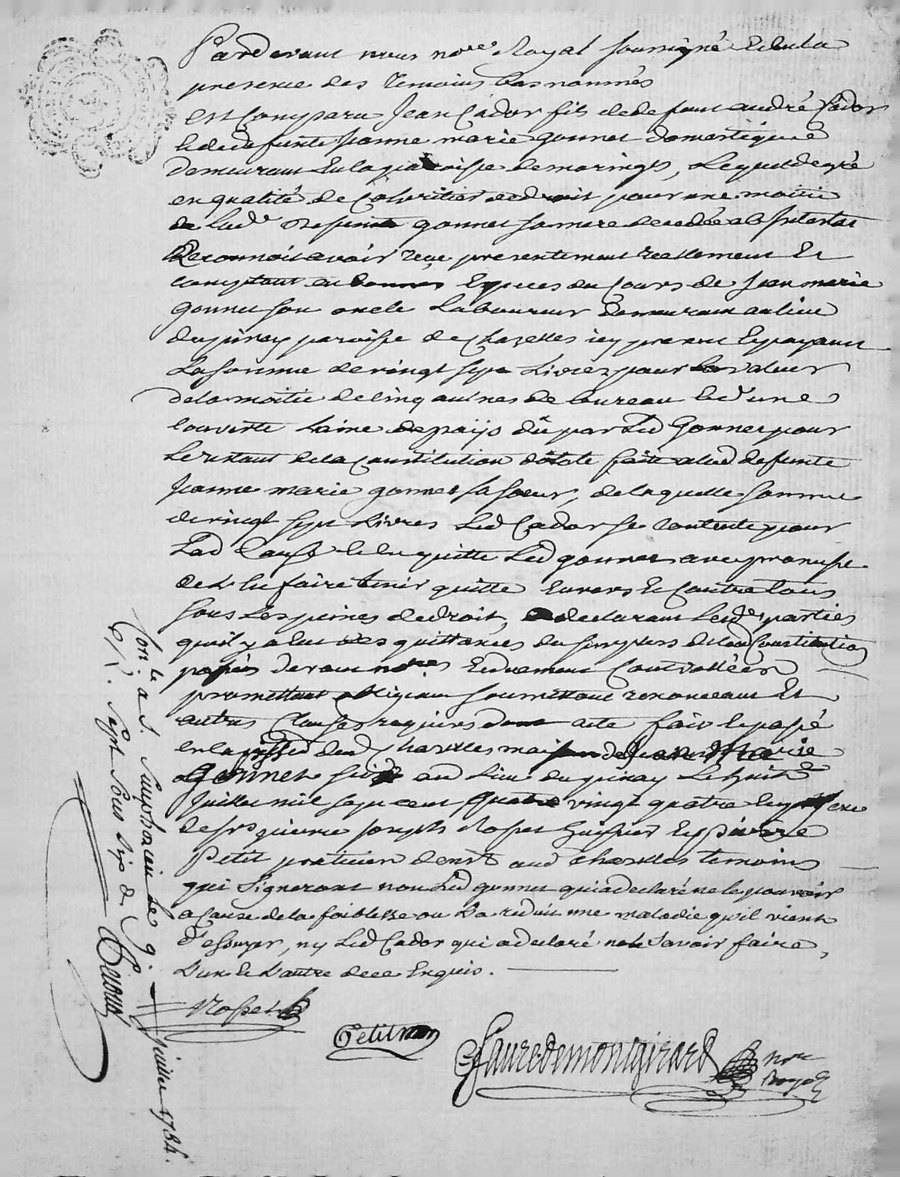 Pardevant nous no.re Royal soussigné Et en la
presence des temoins bas nommés
est Comparu Jean Cador fils de defunt andré Cador
et de defunte Jeanne marie gonnet domestique
demeurant en la paroisse de maringes, Lequel de gré
en qualité de Coheritier de droit pour une moitié
de lad.e gonnet sa mere decedée ab Intestat
Reconnoit avoir reçu presentement reellement Et
comptant en bonnes Especes du Cours de Jean marie
gonnet son oncle Laboureur demeurant au lieu
du pinay paroisse de Chazelles icy present Et payant
La somme de vingt sept Livres pour la valeur
de la moitié de cinq aulnes de bureau et d'une
couverte laine de païs dû par Led Gonnet pour
Le restant de la Constitution dotale faite a lad defunte
Jeanne marie gonnet sa soeur, de laquelle somme
de vingt sept Livres Led Cador se contente pour
Lad Cause et en quitte Led gonnet avec promesse
de l'en faire tenir quitte Envers Et Contre tous
sous Les peines de droit, declarant Lesd.es parties
qu'il y a eu des quittances du surplus de lad Constitution
passées devant no.res Et duement Controllées
promettant obligeant soumettant renonceant Et
autres Clauses requises dont acte fait et passé
en la parroisse dud Chazelles maison de Jean Marie
Gonnet sise aud Lieu du pinay Le huit
Juillet mil sept cent quatre vingt quatre En presence
de s.rs joseph Rosset huissier Et pierre
Petit praticien dem.t aud Chazelles temoins
qui Signeront non Led gonnet qui a declaré ne le pouvoir
a Cause de la foiblesse ou l'a reduit une maladie qu'il vient
d'essuyer, ny Led Cador qui a declaré ne le Savoir faire,
L'un et L'autre de ce Enquis.
Rosset
Petit
Faure de montgirard no.re Royal
Con.lé a S. Simphorien Le 9. Juillet 1784.
sept sous six d.